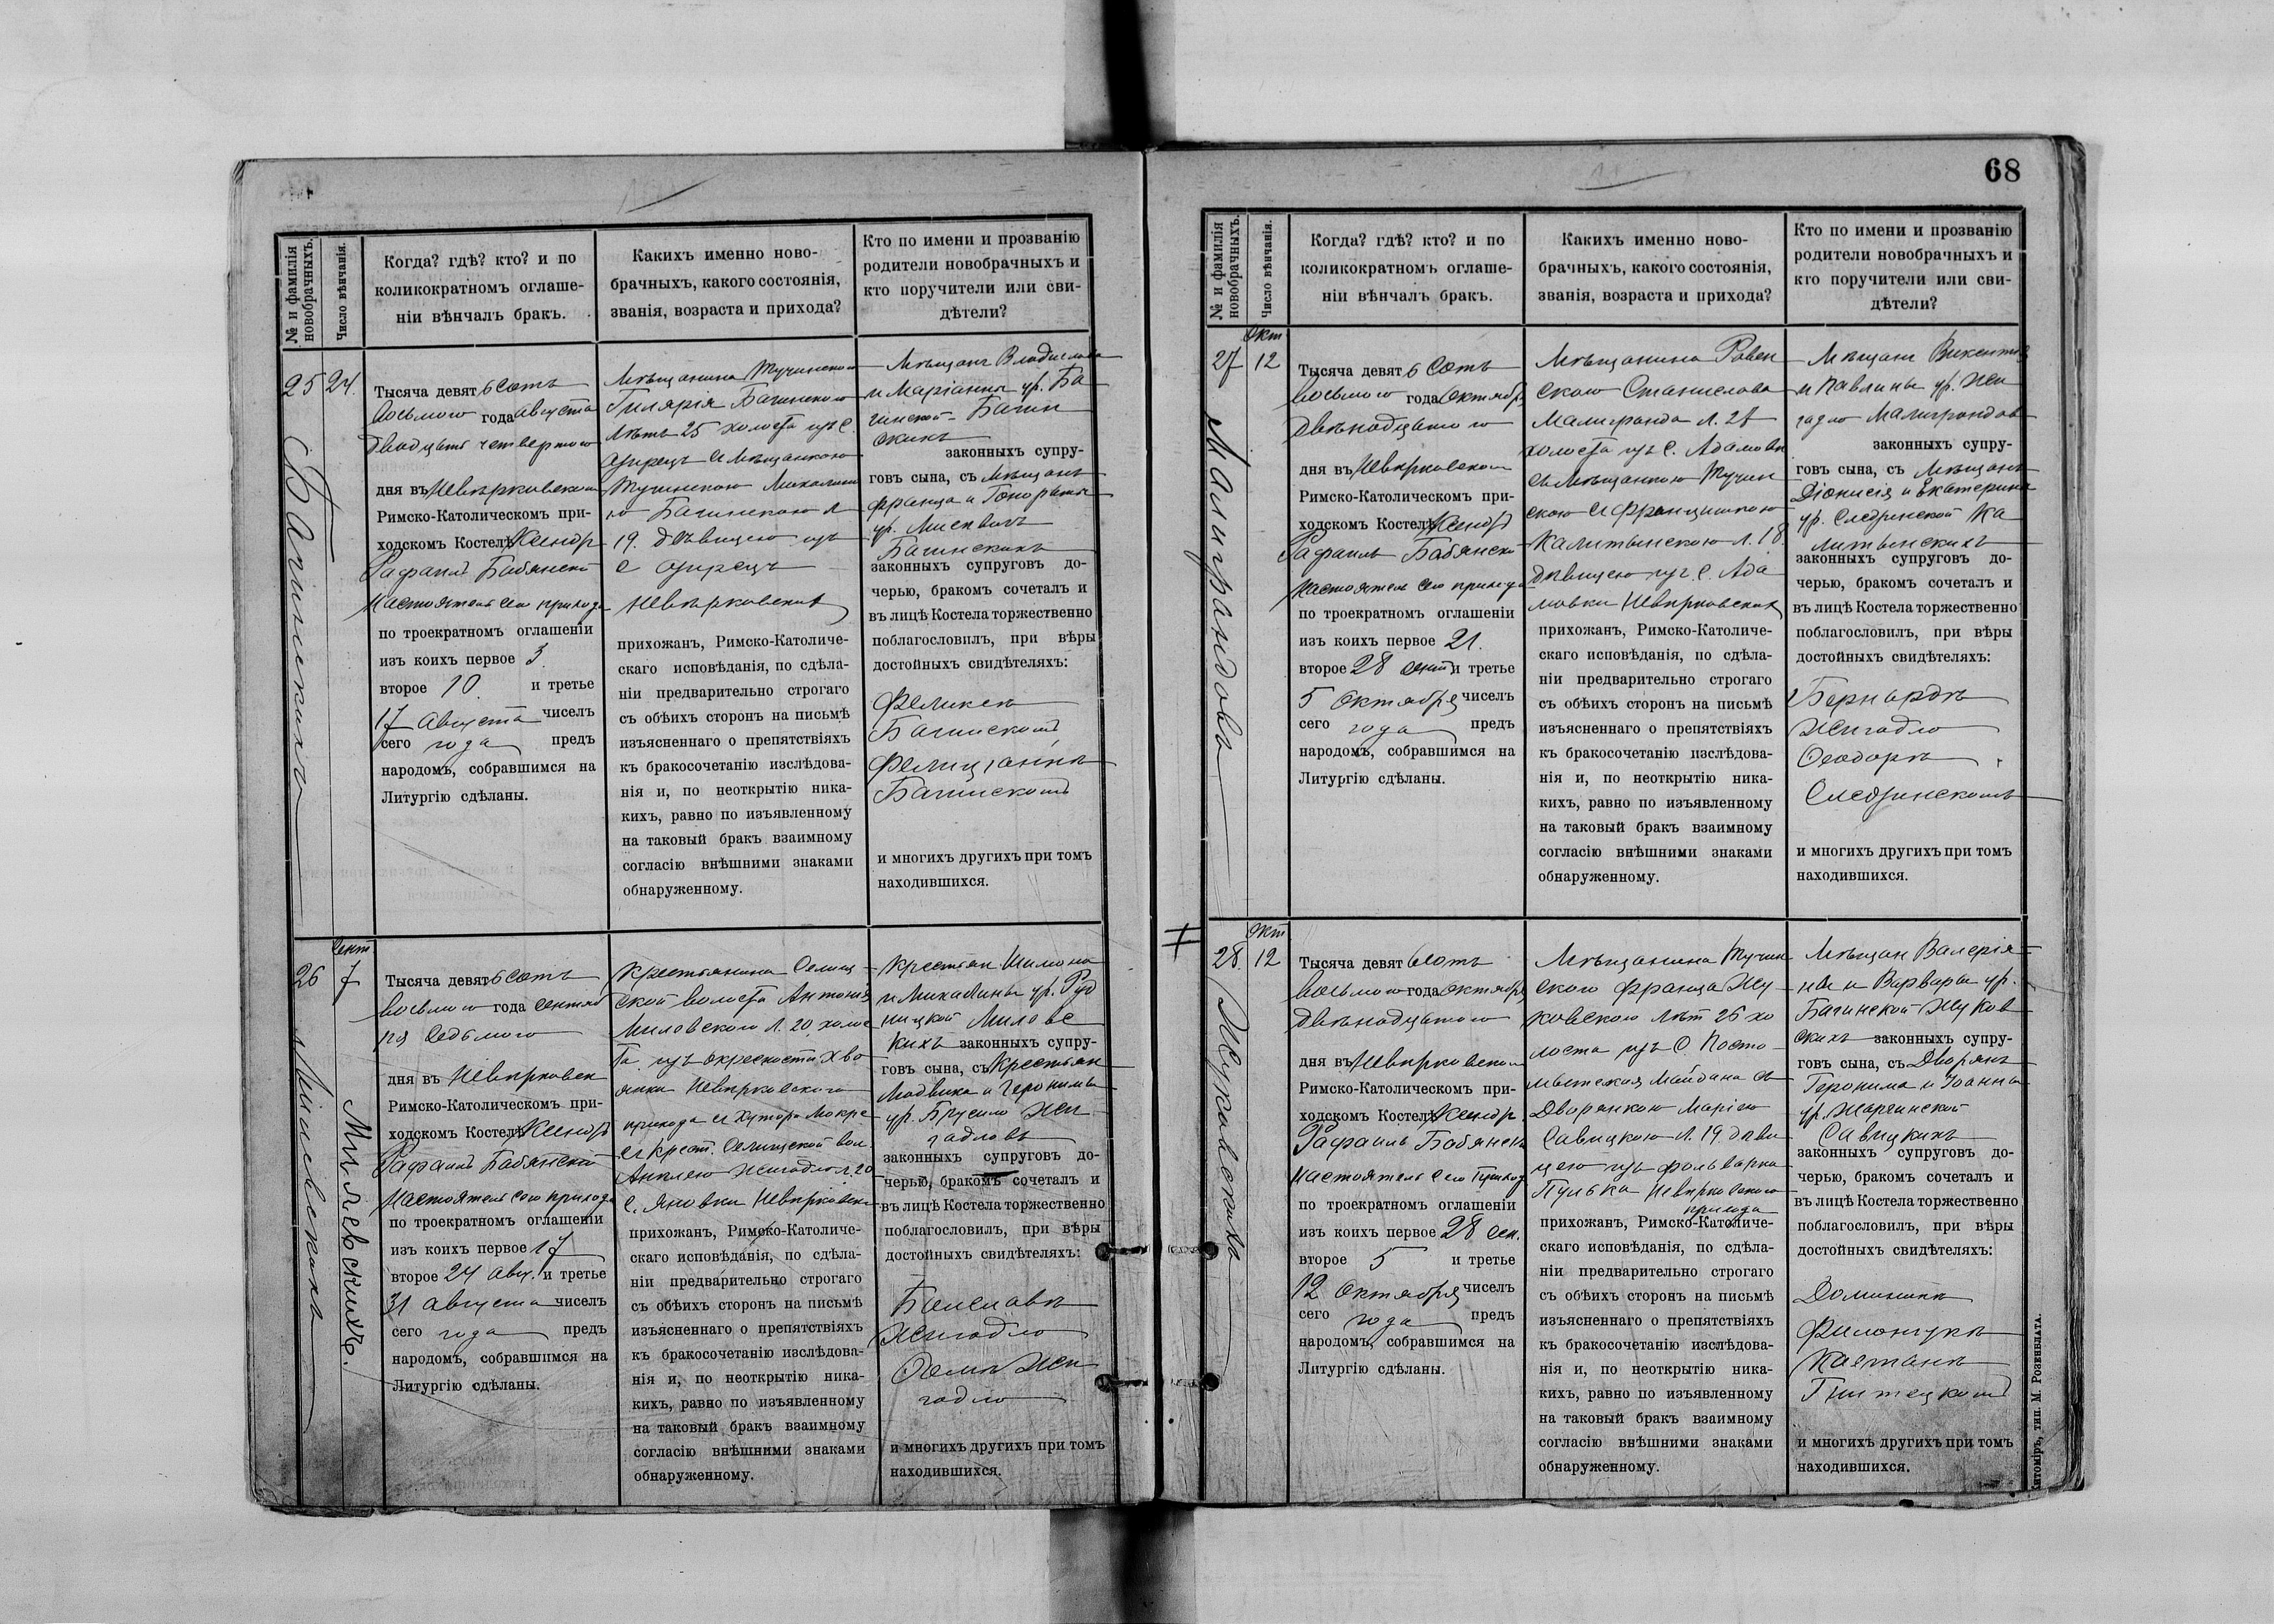 № и фамилія новобрачныхъ.
Число вѣнчанія.
Когда? гдѣ? кто? и по
коликократномъ оглаше-
ніи вѣнчалъ бракъ.
Какихъ именно ново-
брачныхъ, какого состоянія,
званія, возраста и прихода?
Кто по имени и прозванію
родители новобрачныхъ и
кто поручители или сви-
дѣтели?
25
24.
Багинскихъ
Тысяча девятьсотъ
восьмого года августа
двадцать четвертого
дня въ Невѣрковском
Римско-Католическомъ при-
ходскомъ Костелѣ Ксендзъ
Рафаилъ Бабянскій
Настоятель сего прихода
по троекратномъ оглашеніи
изъ коихъ первое 3.
второе 10. и третье
17 августа чиселъ
сего года предъ
народомъ, собравшимся на
Литургію сдѣланы.
Мѣщанина Тучинского
Гилярія Багинского
лѣтъ 25 холоста изъ с.
съ Мѣщанкою
Тучинскою
ю Багинскою л
19. дѣвицею изъ
с
Невѣрковскихъ
прихожанъ, Римско-Католиче-
скаго исповѣданія, по сдѣла-
ніи предварительно строгаго
съ обѣихъ сторонъ на письмѣ
изъясненнаго о препятствіяхъ
къ бракосочетанію изслѣдова-
нія и, по неоткрытію ника-
кихъ, равно по изъявленному
на таковый бракъ взаимному
согласію внѣшними знаками
обнаруженному.
Мѣщанъ Владислава
и Маріанны ур. Ба
гинской Багин
скихъ
законныхъ супру-
говъ сына, съ Мѣщанъ
Франца и Гонораты
ур. Мисевичъ
Багинскихъ
законныхъ супруговъ до-
черью, бракомъ сочеталъ и
въ лицѣ Костела торжественно
поблагословилъ, при вѣры
достойныхъ свидѣтеляхъ:
Феликсъ
Багинскомъ
Фелиціанъ
Багинскомъ
и многихъ другихъ при томъ
находившихся.
26
Сент
7
Милевскихъ
Милевскихъ.
Тысяча девятьсотъ
восьмого года сентяб
ря седьмого
дня въ Невѣрковск
Римско-Католическомъ при-
ходскомъ Костелѣ Ксендзъ
Рафаилъ Бабянскій
Настоятель сего прихода
по троекратномъ оглашеніи
изъ коихъ первое 17
второе 24 авг. и третье
31 августа чиселъ
сего года предъ
народомъ, собравшимся на
Литургію сдѣланы.
Крестьянина Селищ
ской волости Антонія
Миловского л. 20 холос
та изъ окрестности Хво
янки Невѣрковского
прихода и хутора Мокре
съ крест. Селищской вол.
Анелею Жигадло л. 20
с. Яновки Невѣрковски
прихожанъ, Римско-Католиче-
скаго исповѣданія, по сдѣла-
ніи предварительно строгаго
съ обѣихъ сторонъ на письмѣ
изъясненнаго о препятствіяхъ
къ бракосочетанію изслѣдова-
нія и, по неоткрытію ника-
кихъ, равно по изъявленному
на таковый бракъ взаимному
согласію внѣшними знаками
обнаруженному.
Крестьян Шимона
и Михалины ур. Руд
ницкой Миловс
кихъ законныхъ супру-
говъ сына, съ Крестьян
Людвика и Геронимы
ур. Брусило Жи
гадловъ
законныхъ супруговъ до-
черью, бракомъ сочеталъ и
въ лицѣ Костела торжественно
поблагословилъ, при вѣры
достойныхъ свидѣтеляхъ:
Болеславъ
Жигадло
Жи
гадло
и многихъ другихъ при томъ
находившихся.
68
№ и фамилія новобрачныхъ.
Число вѣнчанія.
Когда? гдѣ? кто? и по
коликократномъ оглаше-
ніи вѣнчалъ бракъ.
Какихъ именно ново-
брачныхъ, какого состоянія,
званія, возраста и прихода?
Кто по имени и прозванію
родители новобрачныхъ и
кто поручители или сви-
дѣтели?
27
Окт
12
Малиграндовъ
Тысяча девятьсотъ
восьмого года октябр
двѣнадцатого
дня въ Невѣрковском
Римско-Католическомъ при-
ходскомъ Костелѣ Ксендзъ
Рафаилъ Бабянски
Настоятель сего прихода
по троекратномъ оглашеніи
изъ коихъ первое 21.
второе 28 сент и третье
5 октября чиселъ
сего года предъ
народомъ, собравшимся на
Литургію сдѣланы.
Мѣщанина Ровен
ского Станислава
Малигранда л. 27
холоста изъ с. Адамовк
съ Мѣщанкою Тучин
скою Францишкою
Калитынскою л. 18
дѣвицею изъ с. Ада
мовки Невѣрковских
прихожанъ, Римско-Католиче-
скаго исповѣданія, по сдѣла-
ніи предварительно строгаго
съ обѣихъ сторонъ на письмѣ
изъясненнаго о препятствіяхъ
къ бракосочетанію изслѣдова-
нія и, по неоткрытію ника-
кихъ, равно по изъявленному
на таковый бракъ взаимному
согласію внѣшними знаками
обнаруженному.
Мѣщанъ Викентія
и Павлины ур. Жи
гадло Малиграндов
законныхъ супру-
говъ сына, съ Мѣщанъ
Діонисія и Екатерины
ур. Следзинской Ка
литынскихъ
законныхъ супруговъ до-
черью, бракомъ сочеталъ и
въ лицѣ Костела торжественно
поблагословилъ, при вѣры
достойныхъ свидѣтеляхъ:
Бернардъ
Жигадло
Ѳеодоръ
Следзинскомъ
и многихъ другихъ при томъ
находившихся.
28.
Окт
12
Жуковскихъ
Тысяча девятьсотъ
восьмого года октября
двѣнадцатого
дня въ Невѣрковском
Римско-Католическомъ при-
ходскомъ Костелѣ Ксендзъ
Рафаилъ Бабянскі
Настоятель сего прихода
по троекратномъ оглашеніи
изъ коихъ первое 28 сен.
второе 5 и третье
12 октября чиселъ
сего года предъ
народомъ, собравшимся на
Литургію сдѣланы.
Мѣщанина Тучин
ского Франца Жу
ковского лѣт 26 хо
лоста изъ с. Посто
Майдана съ
Дворянкою Маріею
Савицкою л. 19 дѣви
цею изъ фольварка
Пулька Невѣрковского
прихода
прихожанъ, Римско-Католиче-
скаго исповѣданія, по сдѣла-
ніи предварительно строгаго
съ обѣихъ сторонъ на письмѣ
изъясненнаго о препятствіяхъ
къ бракосочетанію изслѣдова-
нія и, по неоткрытію ника-
кихъ, равно по изъявленному
на таковый бракъ взаимному
согласію внѣшними знаками
обнаруженному.
Мѣщан Валерія
на и Варвары ур.
Багинской Жуков
скихъ законныхъ супру-
говъ сына, съ Дворянъ
Геронима и Іоанны
ур.
Савицкихъ
законныхъ супруговъ до-
черью, бракомъ сочеталъ и
въ лицѣ Костела торжественно
поблагословилъ, при вѣры
достойныхъ свидѣтеляхъ:
Доминикъ
Филончукъ
Каетанъ
Гнитецкомъ
и многихъ другихъ при томъ
находившихся.
Житомiръ, тип. М. Розенблата.